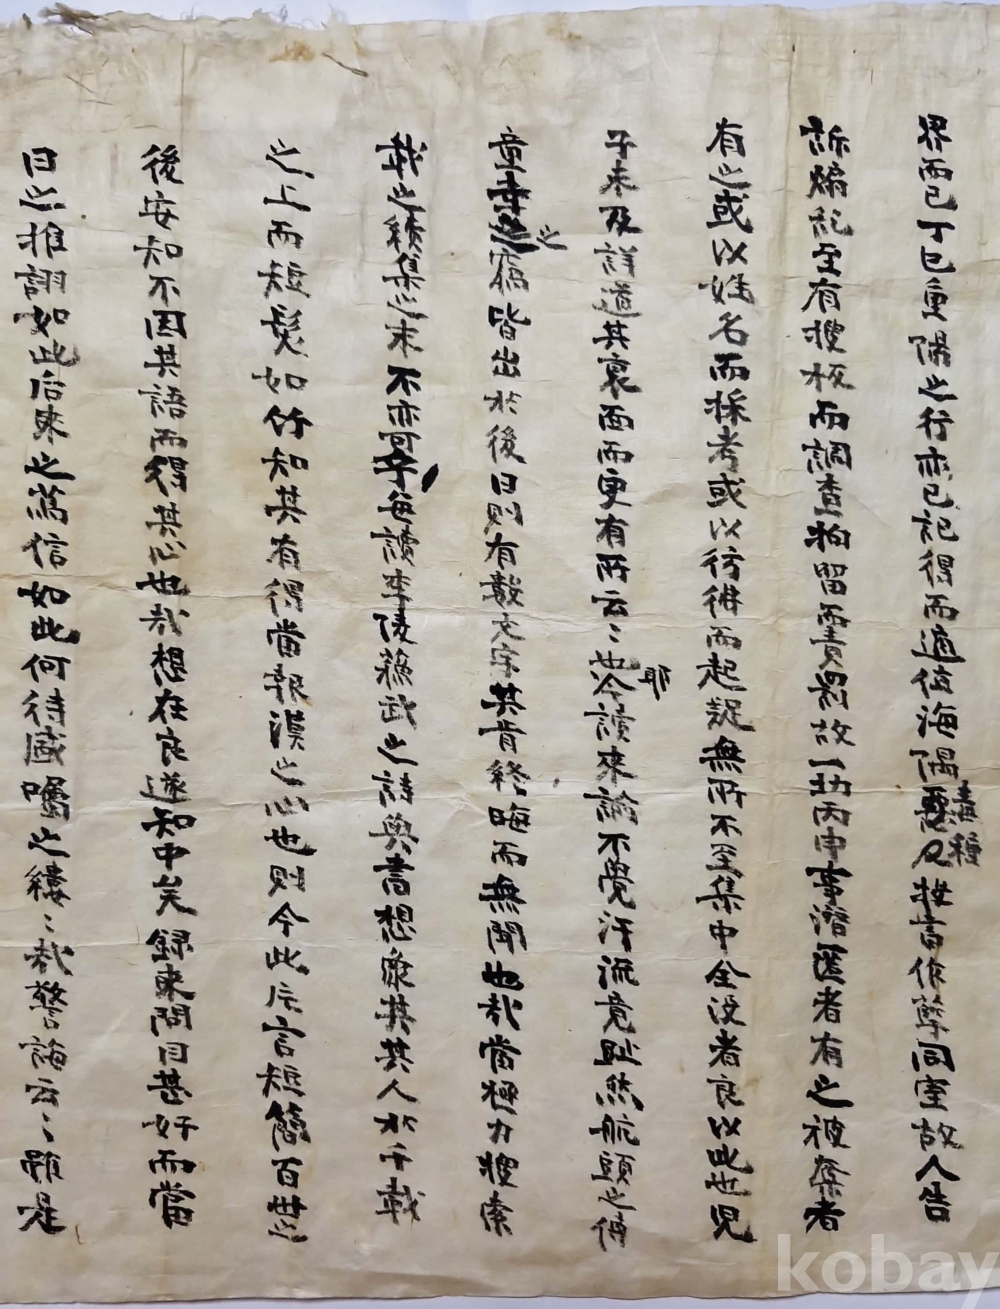 界而已丁巳重陽之行亦已記得而適値海隅遺種及妝書作孽同室故人告
訴煽乱至有搜板而調查拘留而責罰故一出丙申事潛匿者有之被奪者
有之或以姓名而採考或以彷彿而起疑無所不至集中全沒者良以此也兒
子未及詳道其裏面而更有所云〻耶今讀來諭不覺汗流竟趾然航頭之傳
童之寫皆出於後日則有數文字其肯終晦而無聞也哉當極力搜索
載之續集之末不亦可乎每讀李陵蘇武之詩與書想像其人於千載
之上而短髮如竹知其有得當報漢之心也則今此片言短簡百世之
後安知不因其語而得其心也哉想在良遂知中矣錄來問目甚好而當
日之推詡如此后來之篤信如此何待感囑之縷〻哉警誨云〻雖是
kobay